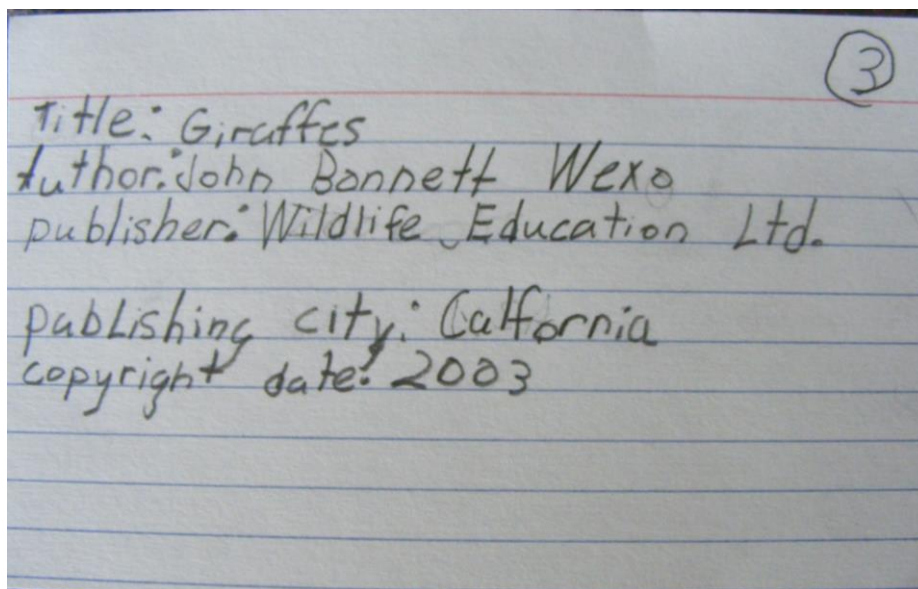 3
Title: Giraffes
Author: John Bonnett Wexo
publisher: Wildlife Education Ltd.
publishing city: Calfornia
copyright date: 2003